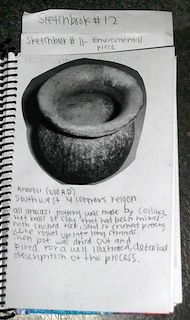 Sketchbook #12
Sketchbook #11- Enviormental
piece
Anasazi (200 A.D)
Southwest 4 corners reigon
all anasazi pottery was made by coiling
wet balls of clay that had been mixed
with crushed rock, sand or crushed pottery
were rolled up into long strands.
Then pot was dried out and
fired. For a well illustrated, detailed
description of this process.